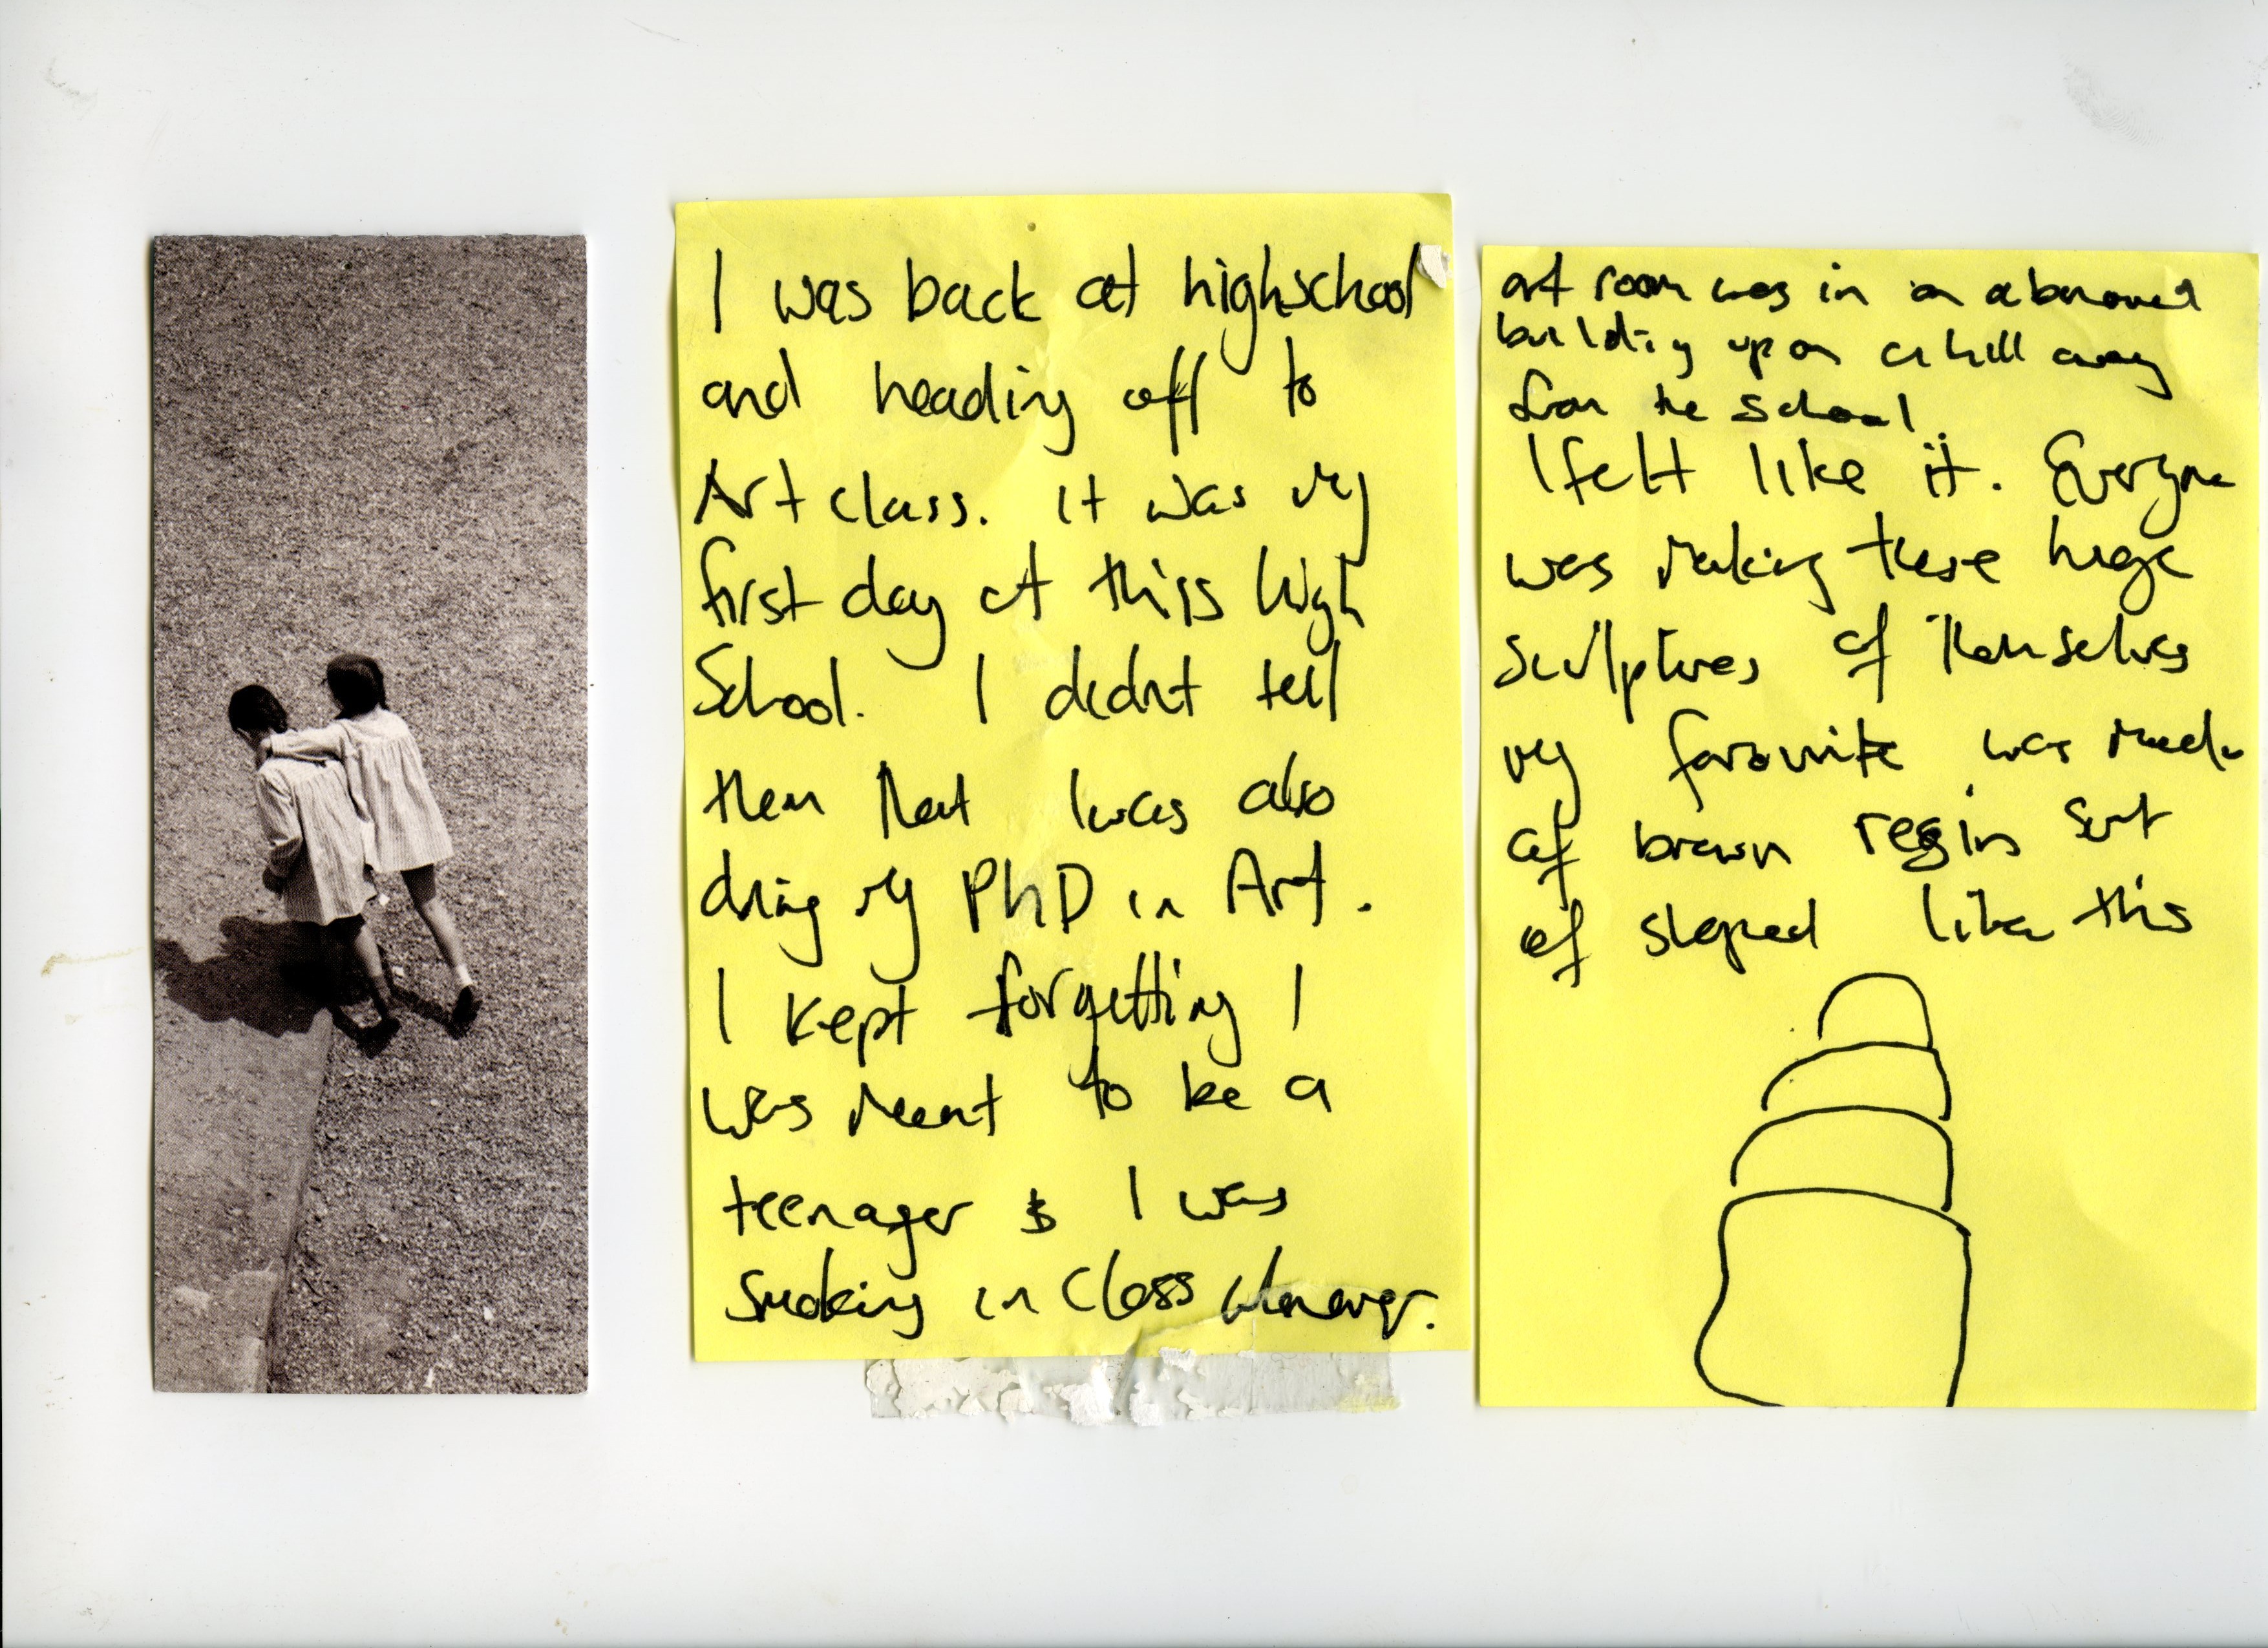 I was back at highschool
and heading off to
Art class. It was my
first day at this high
School. I didnt tell
them that I was also
doing my PhD in Art.
I kept forgetting I
was meant to be a
teenager & I was
smoking in class whenever.
art room was in an abandoned
building up on a hill away
from the school
I felt like it. Everyone
was making these huge
sculptures of themselves
my favourite was made
of brown resin sort
of sloped like this